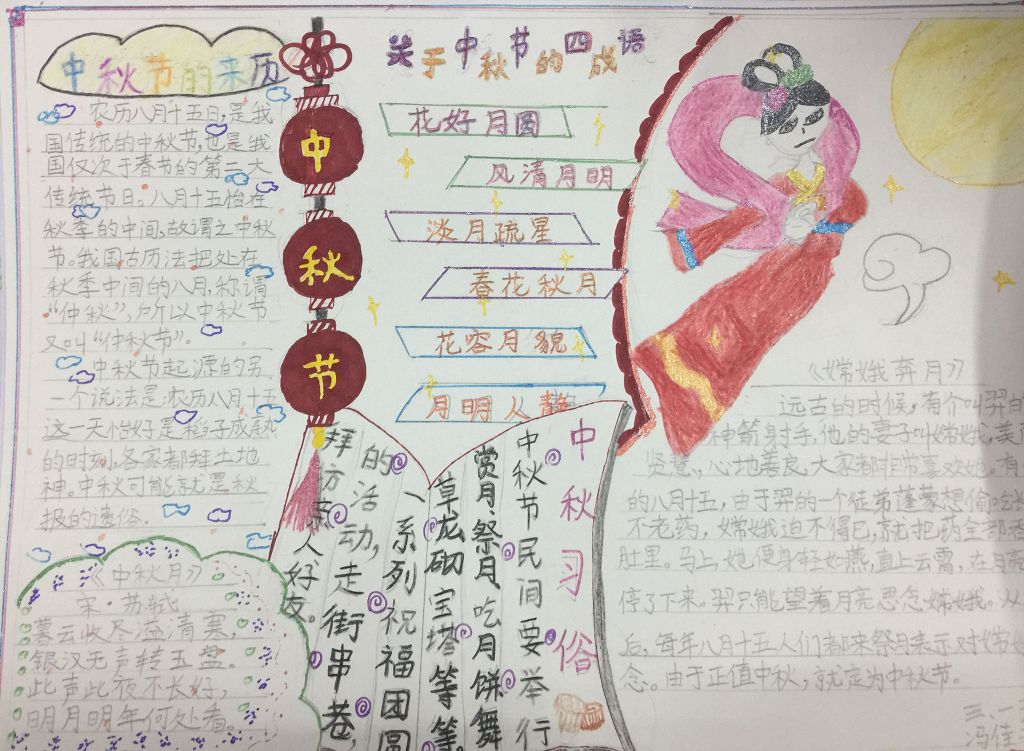 中秋节的来历
农历八月十五日,是我
国传统的中秋节,也是我
国仅次于春节的第二大
传统节日。八月十五恰在
秋季的中间,故谓之中秋
节。我国古历法把处在
秋季中间的八月,称谓
“仲秋”,所以中秋节
又叫“仲秋节”。
中秋节起源的另
一个说法是:农历八月十五
这一天恰好是稻子成熟
的时刻,各家都拜土地
神。中秋可能就是秋
报的遗俗.
《中秋月》
宋·苏轼
暮云收尽溢清寒,
银汉无声转玉盘。
此声此夜不长好,
明月明年何处看。
中
秋
节
关于中节四语
中秋的成
花好月圆
风清月明
淡月疏星
春花秋月
花容月貌
月明人静
中秋习俗
中秋节民间要举行
赏月、祭月、吃月饼、舞
草龙砌宝塔等等
一系列祝福团圆
的活动,走街串巷,
拜访亲人好友。
《嫦娥奔月》
远古的时候,有个叫羿的
神箭射手,他的妻子叫嫦娥,美
贤惠,心地善良,大家都非常喜欢她。有
的八月十五,由于羿的一个徒弟蓬蒙想偷吃长
不老药,嫦娥迫不得已,就把药全部吞
肚里。马上,她便身轻如燕,直上云霄,在月亮
停了下来。羿只能望着月亮思念嫦娥。从
后,每年八月十五人们都来祭月表示对嫦娥
念。由于正值中秋,就定为中秋节。
三、一
冯佳